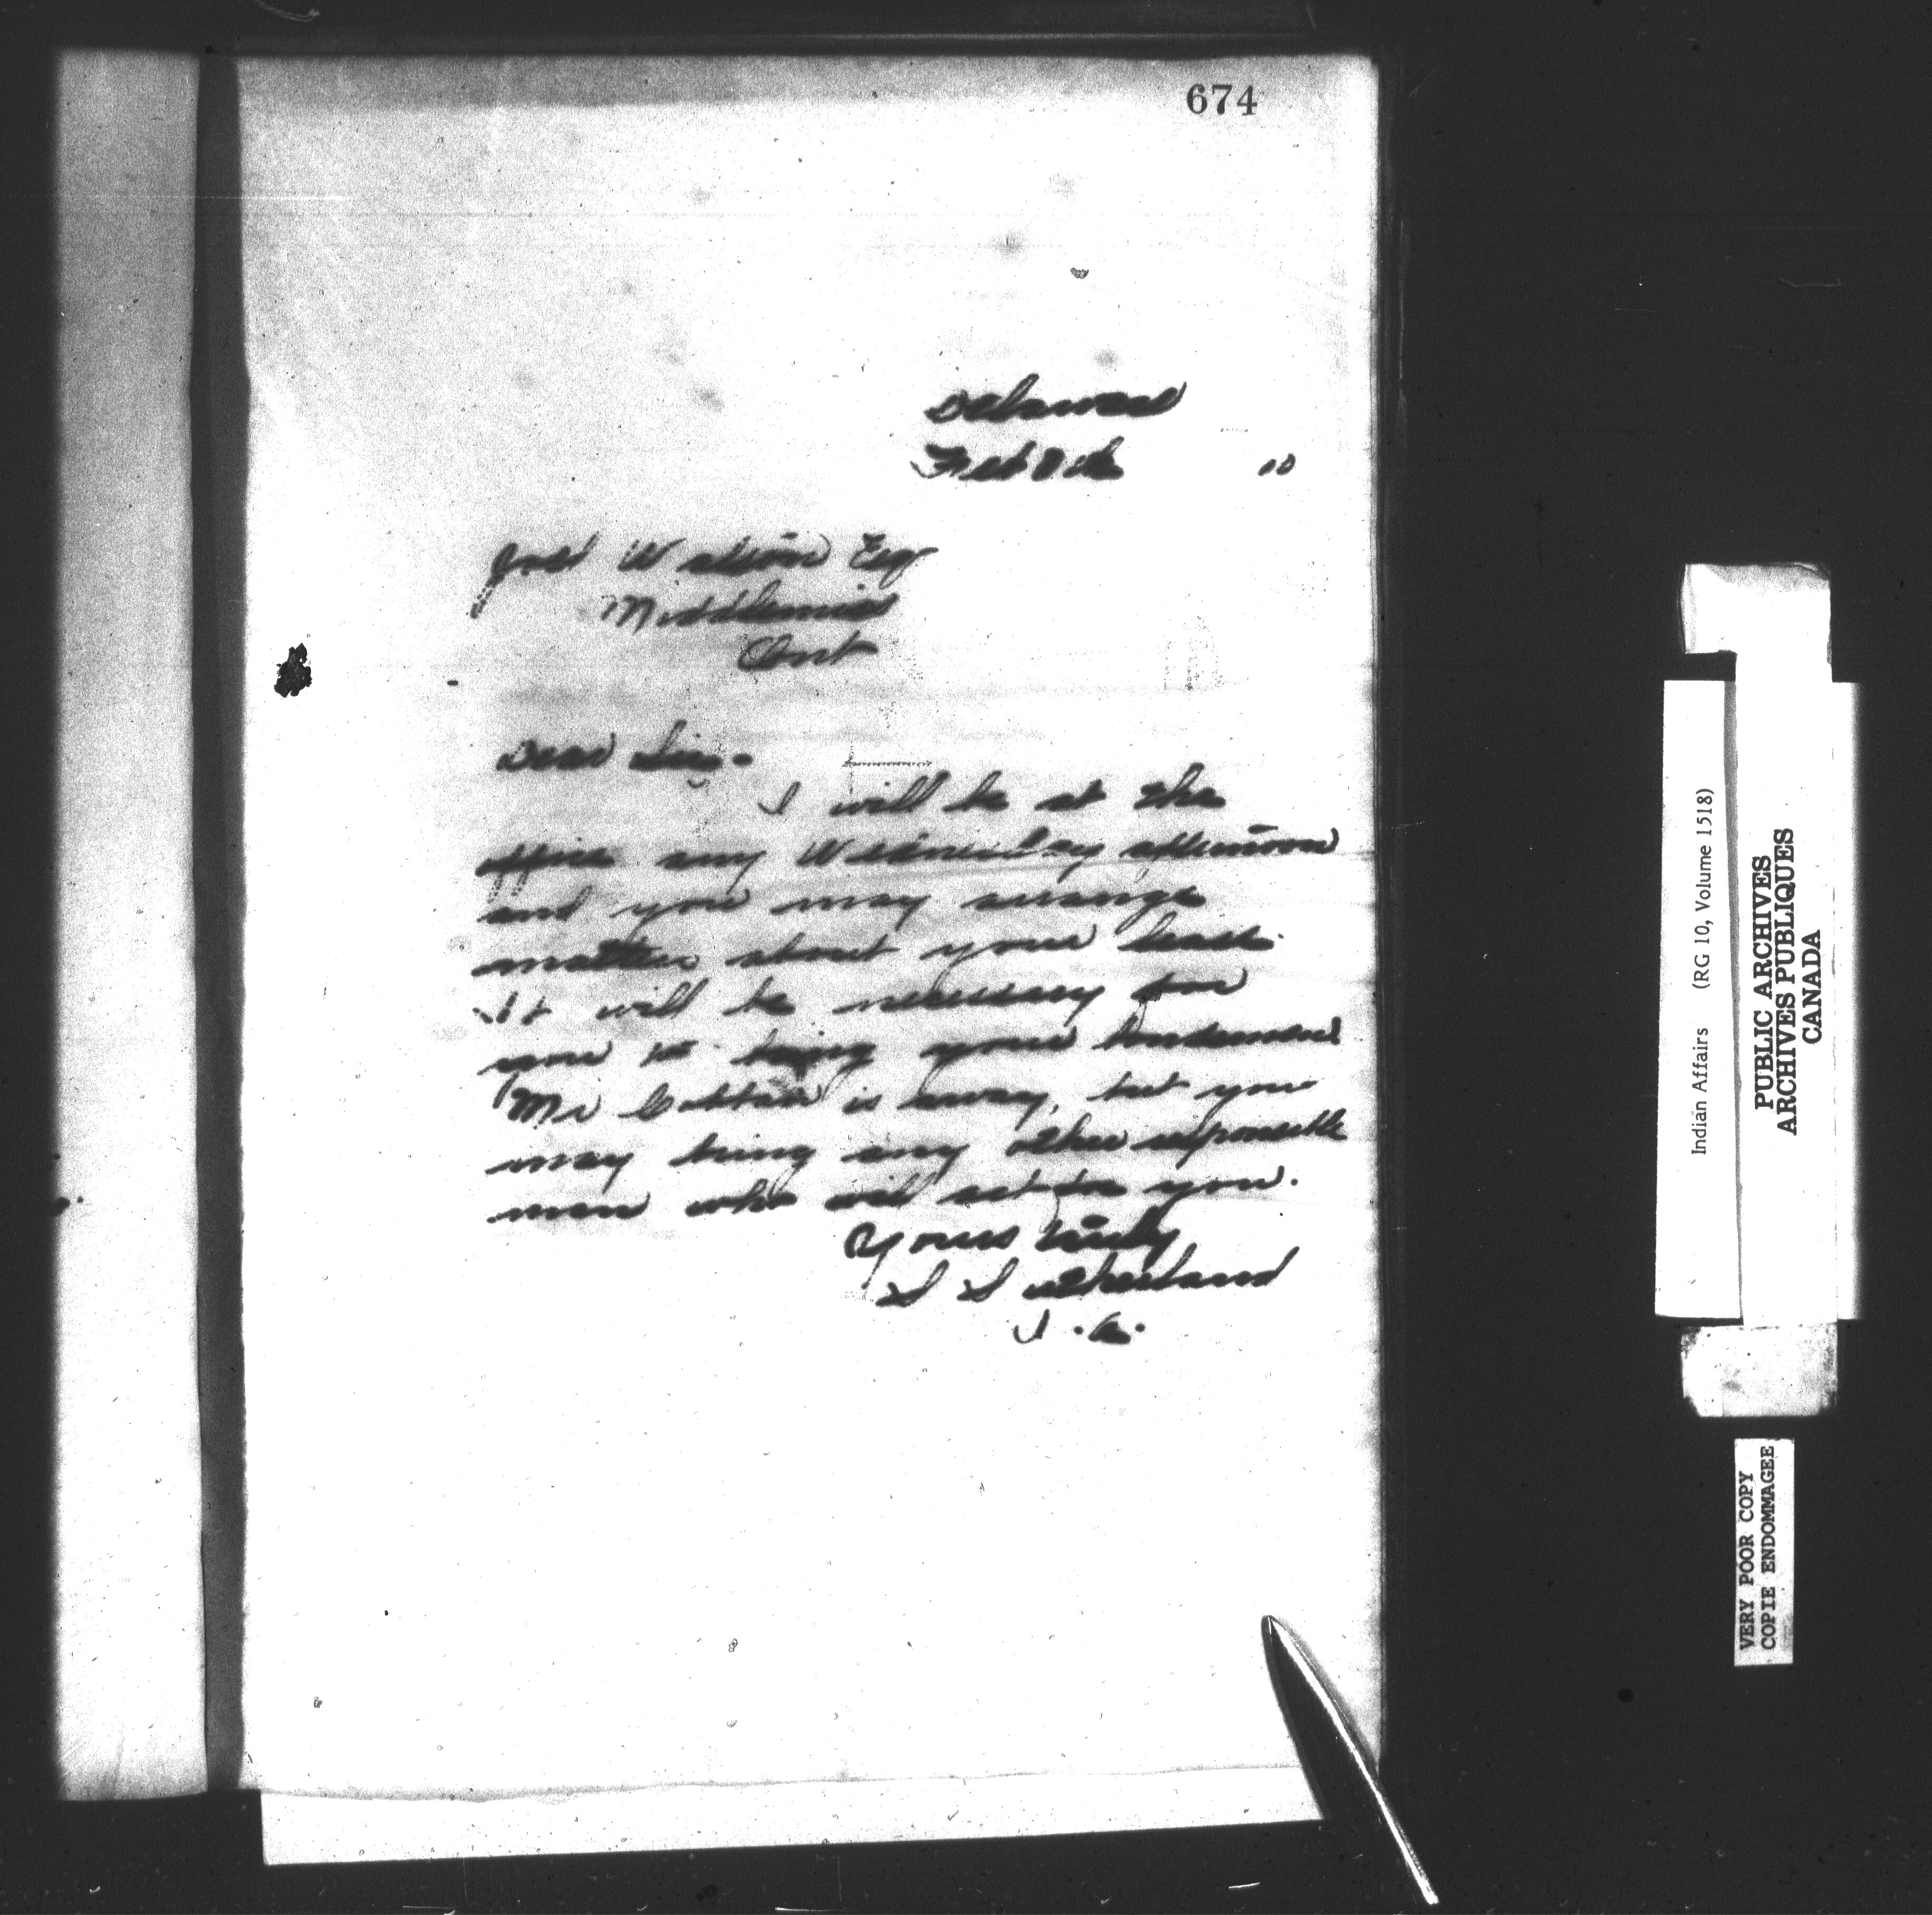 674
Delaware
Feb 8th 10
Watson Esq
Middlemiss
Ont
Dear Sir.
I will be at the
office any Wednesday afternoon
and you may arrange
matters about your lease.
It will be necessary for
you to bring your bondsmen
Mr is away, but you
may bring any other responsible
man who will act for you.
Yours truly
S Sutherland
I.A.
Indian Affairs (RG 10, Volume 1518)
PUBLIC ARCHIVES
ARCHIVES PUBLIQUES
CANADA
VERY POOR COPY
COPIE ENDOMMAGEE